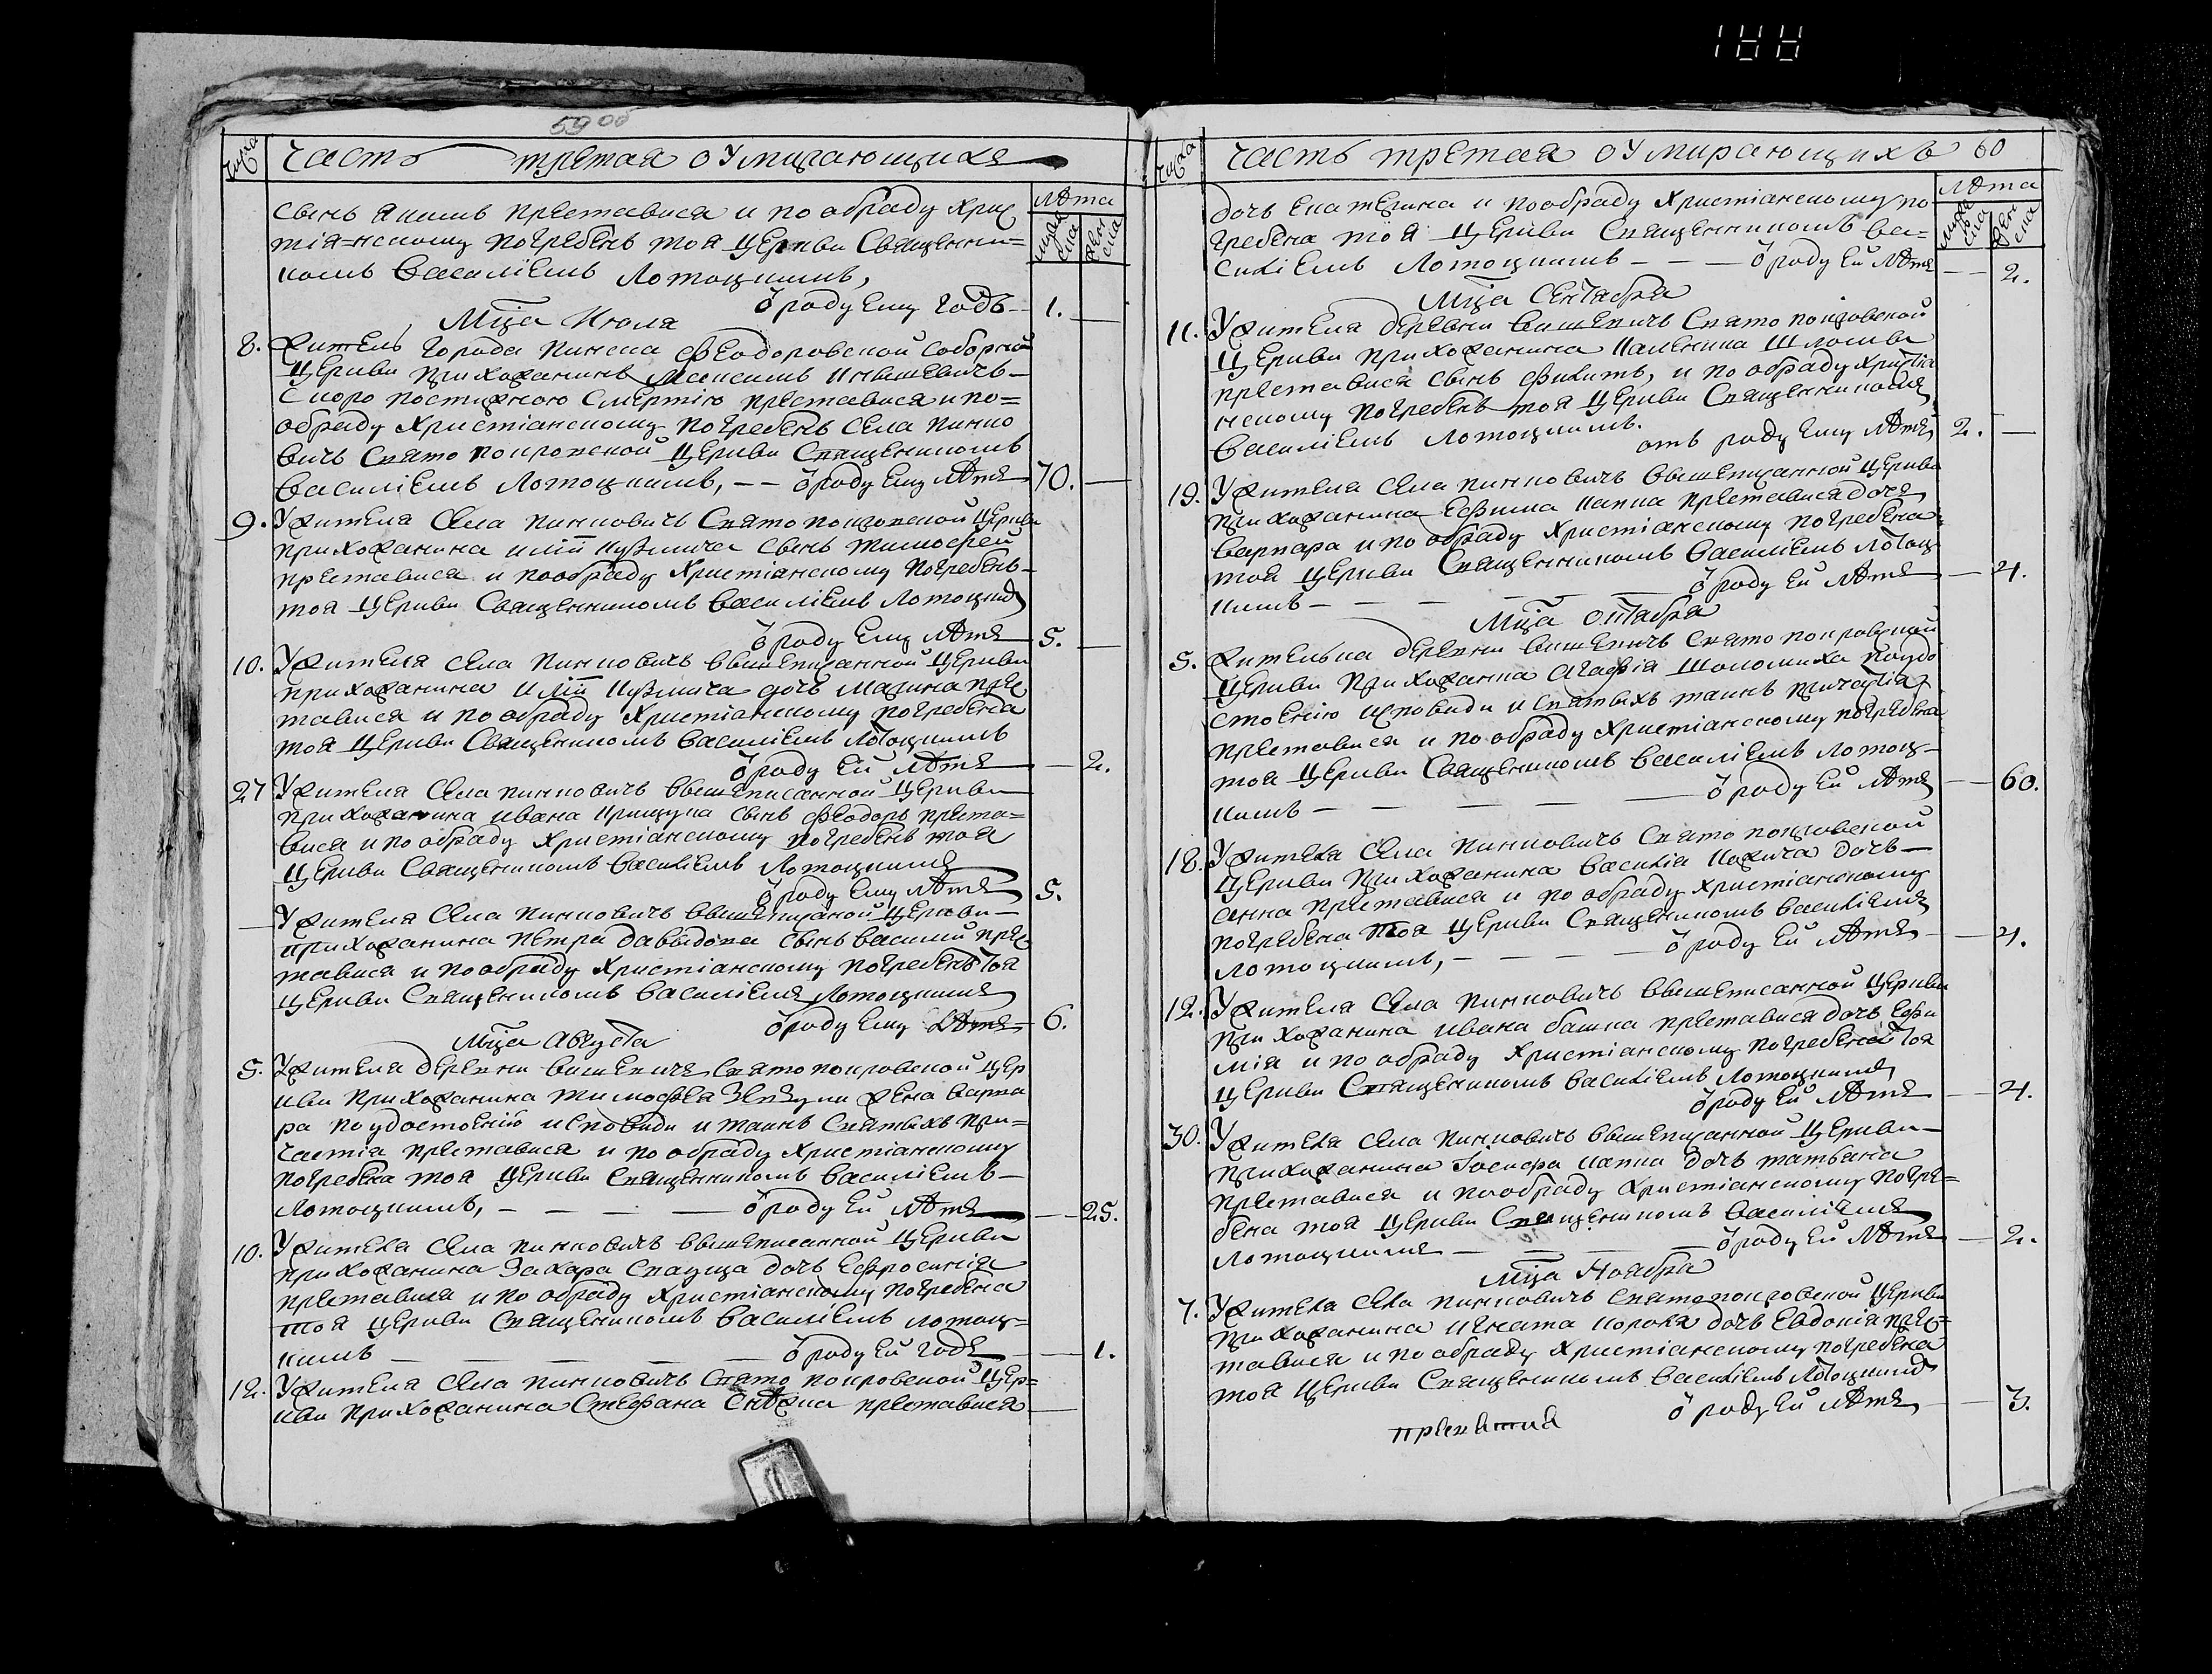 188
59 об
Числа
Часть третая о умирающихъ
Лѣта
мужеска
женска
сынъ Якимъ преставися и по обряду Хрис
тіа=нскому погребенъ тоя Церкви Священни=
комъ Василіемъ Лотоцкимъ,
ѿ роду ему годъ 1.
Мца Июля
8. Житель города Пинска Феодоровской Соборной
Церкви прихожанинъ Максимъ
Скоро постижною Смертію преставися и по=
обряду Христіанскому погребенъ Села Пинко
вичъ Свято Покровской Церкви Священникомъ
Василіемъ Лотоцкимъ, — — ѿ роду ему лѣтъ 70.
9. У жителя Села Пинковичъ Свято Покровской Церкви
прихожанина Иліи Кузмича сынъ Тимофей
преставися и по обряду Христіанскому погребенъ
тоя Церкви Священникомъ Василіемъ Лотоцким
ѿ роду ему лѣтъ 5.
10. У жителя Села Пинковичъ вышеписанной Церкви
прихожанина Иліи Кузмича дочь Марина прес
тавися и по обряду Христіанскому погребена
тоя Церкви Священникомъ Василіемъ Лотоцкимъ
ѿ роду ей лѣтъ — 2.
27 У жителя Села Пинковичъ вышеписанной Церкви
прихожанина Ивана Крищука сынъ Феодоръ преста=
вися и по обряду Христіанскому погребенъ тоя
Церкви Священникомъ Василіемъ Лотоцкимъ
ѿ роду ему лѣтъ 5.
— У жителя Села Пинковичъ вышеписаной Церкви
прихожанина Петра Давыдова сынъ Василий прес
тавися и по обряду Христіанскому погребенъ тоя
Церкви Священникомъ Василіемъ Лотоцкимъ
ѿ роду ему лѣтъ 6.
Мца Августа
5. У жителя деревни Вишевичъ Свято Покровской Цер
кви прихожанина Тимофѣя жена Варва
ра по удостоению исповѣди и таинъ Святыхъ при=
частія преставися и по обряду Христіанскому
погребена тоя Церкви Священникомъ Василіемъ
Лотоцкимъ, — — — — ѿ роду ей лѣтъ — 25.
10. У жителя Села Пинковичъ вышеписанной Церкви
прихожанина Захара дочь Ефросинія
преставися и по обряду Христіанскому погребена
тоя Церкви Священникомъ Василіемъ Лотоц=
кимъ — — — — ѿ роду ей годъ — 1.
12. У жителя Села Пинковичъ Свято Покровской Цер=
кви прихожанина Стефана преставися
Числа
Часть третая о умирающихъ 60
Лѣта
мужеска
женска
дочь Екатерина и по обряду Христіанскому по
гребена тоя Церкви Священникомъ Ва=
силіемъ Лотоцкимъ — — — ѿ роду ей лѣтъ — 2.
Мца Сентября
11. У жителя деревни Вишевичъ Свято Покровской
Церкви прихожанина
преставися сынъ Филипъ, и по обряду Христіа
нскому погребенъ тоя Церкви Священникомъ
Василіемъ Лотоцкимъ.
отъ роду ему лѣтъ 2.
19. У жителя Села Пинковичъ вышеписанной Церкви
прихожанина Ефима преставися дочь
Варвара и по обряду Христіанскому погребена
тоя Церкви Священникомъ Василіемъ Лотоц
кимъ — — — — ѿ роду ей лѣтъ — 4.
Мца Октября
5. Жителька деревни Вишевичъ Свято Покровской
Церкви прихожанка Агафія Шоломиха по удо
стоенію исповѣди и Святыхъ таинъ причастія
преставися и по обряду Христіанскому погребена
тоя Церкви Священникомъ Василіемъ Лотоц=
кимъ — — — — — ѿ роду ей лѣтъ — 60.
18. У жителя Села Пинковичъ Свято Покровской
Церкви прихожанина Василія дочь
Анна преставися и по обряду Христіанскому
погребена тоя Церкви Священникомъ Василіемъ
Лотоцкимъ, — — — — ѿ роду ей лѣтъ — 4.
12. У жителя Села Пинковичъ вышеписанной Церкви
прихожанина Ивана Башка преставися дочь Ефи
мія и по обряду Христіанскому погребена тоя
Церкви Священникомъ Василіемъ Лотоцкимъ
ѿ роду ей лѣтъ — 4.
30. У жителя Села Пинковичъ вышеписанной Церкви
прихожанина Іосифа дочь Татьяна
преставися и по обряду Христіанскому погре=
бена тоя Церкви Священникомъ Василіемъ
Лотоцкимъ — — — — ѿ роду ей лѣтъ — 2.
Мца Ноября
7. У жителя Села Пинковичъ Свято Покровской Церкви
прихожанина Игната дочь Евдокія прес=
тавися и по обряду Христіанскому погребена
тоя Церкви Священникомъ Василіемъ Лотоцким
ѿ роду ей лѣтъ — 3.